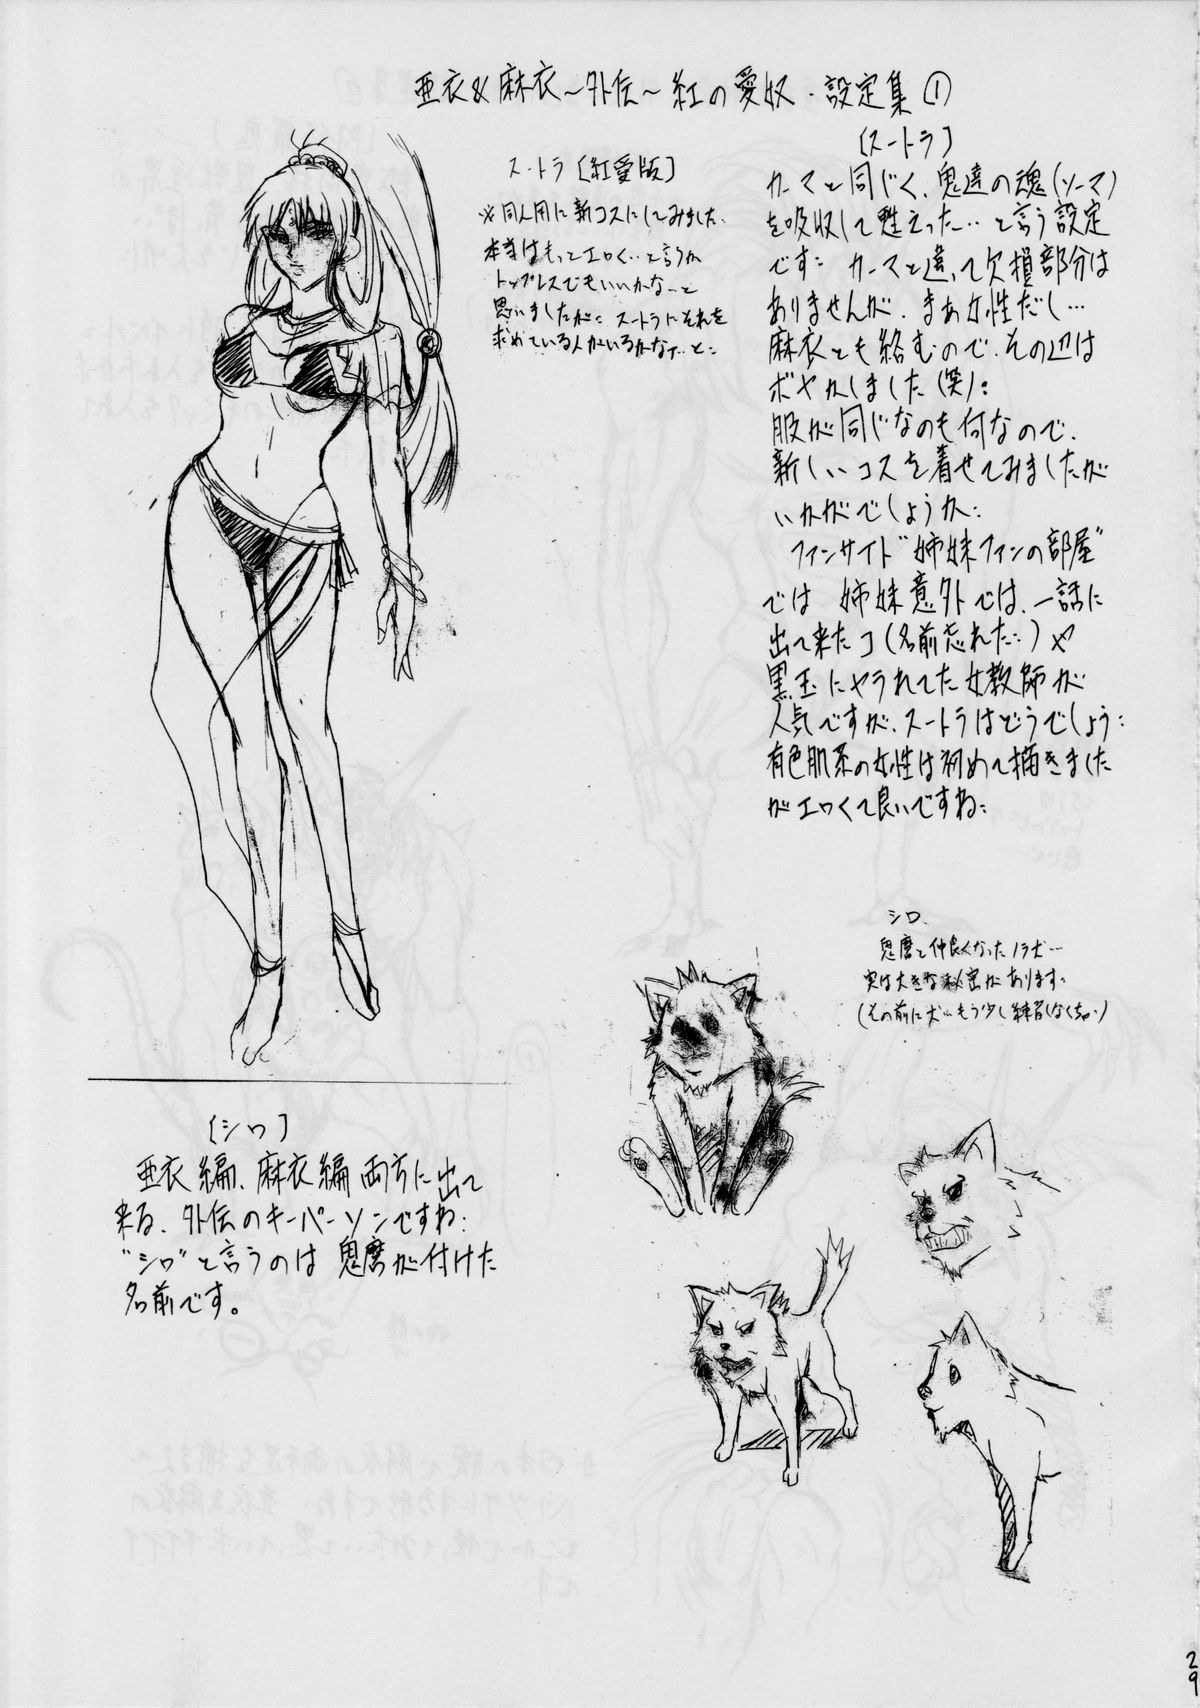 亜衣&麻衣～外伝～紅の愛奴・設定集①
スートラ〔紅愛版〕
※同人用に新コスにしてみました.
本当はもっとエロく…と言うか
トップレスでもいいかなーと
思いましたが… スートラにそれを
求めている人がいるかなァ…と…
〔スートラ〕
カーマと同じく、鬼達の魂(ソーマ)
を吸収して甦えった…と言う設定
です… カーマと違って欠損部分は
ありませんが、まぁ女性だし…
麻衣とも絡むので、その辺は
ボヤかしました(笑)…
服が同じなのも何なので、
新しいコスを着せてみましたが
いかがでしょうか…
ファンサイト“姉妹ファンの部屋”
では 姉妹意外では、一話に
出て来たコ(名前忘れた…)や
黒玉にヤラれてた女教師が
人気ですが、スートラはどうでしょう…
有色肌系の女性は初めて描きました
がエロくて良いですね…
シロ.
鬼麿と仲良くなったノラ犬…
実は大きな秘密があります…
(その前に犬…もう少し練習しなくちゃ…)
〔シロ〕
亜衣編、麻衣編両方に出て
来る、外伝のキーパーソンですね…
“シロ”と言うのは鬼麿が付けた
名前です。
29